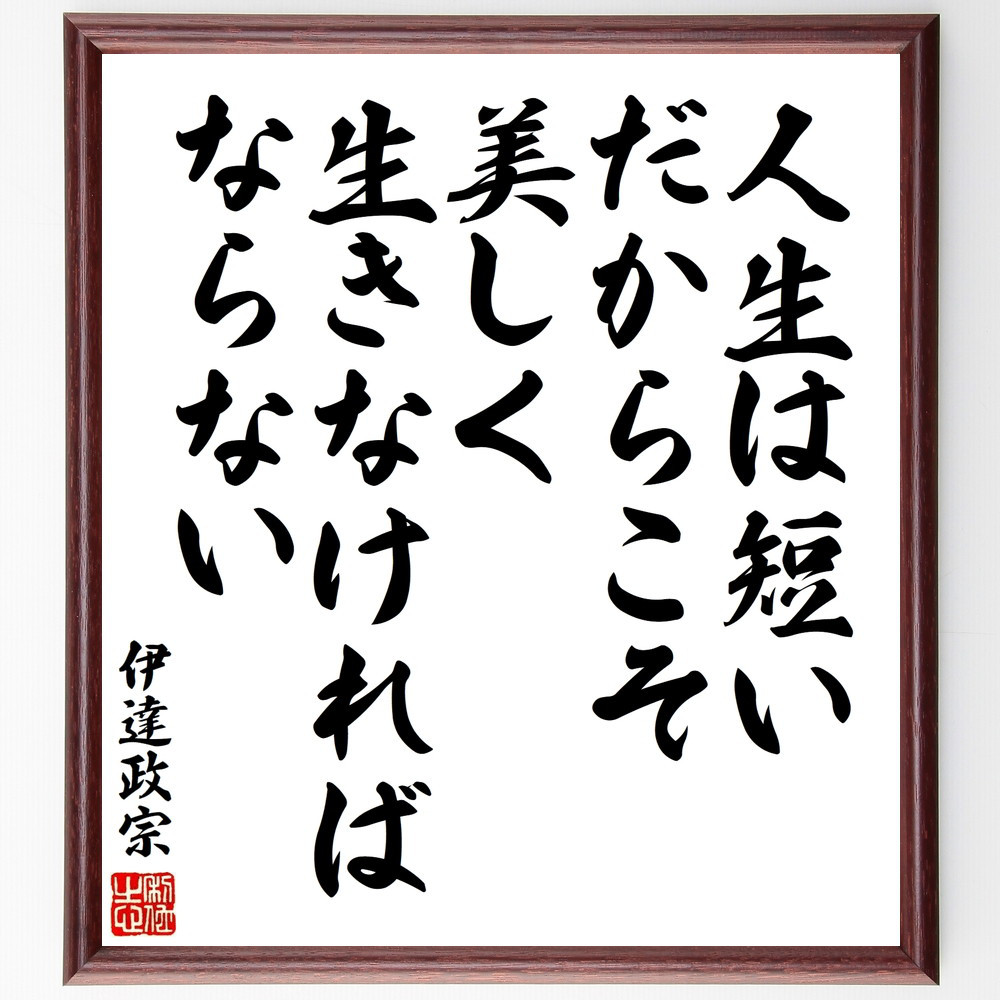 人生は短い
だからこそ
美しく
生きなければ
ならない
伊達政宗